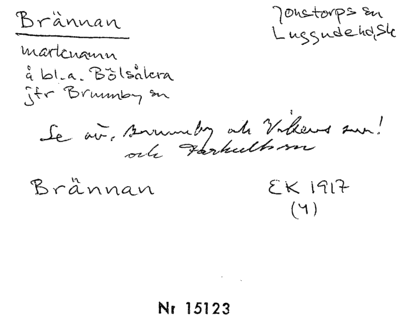 Brännan
Jonstorps sn
Luggude hd, Sk
marknamn
å bl.a. Bölsåkra
jfr Brunnby sn
Se äv. Brunnby och Vikens sn!
och
Brännan
EK 1917
(4)
Nr 15123